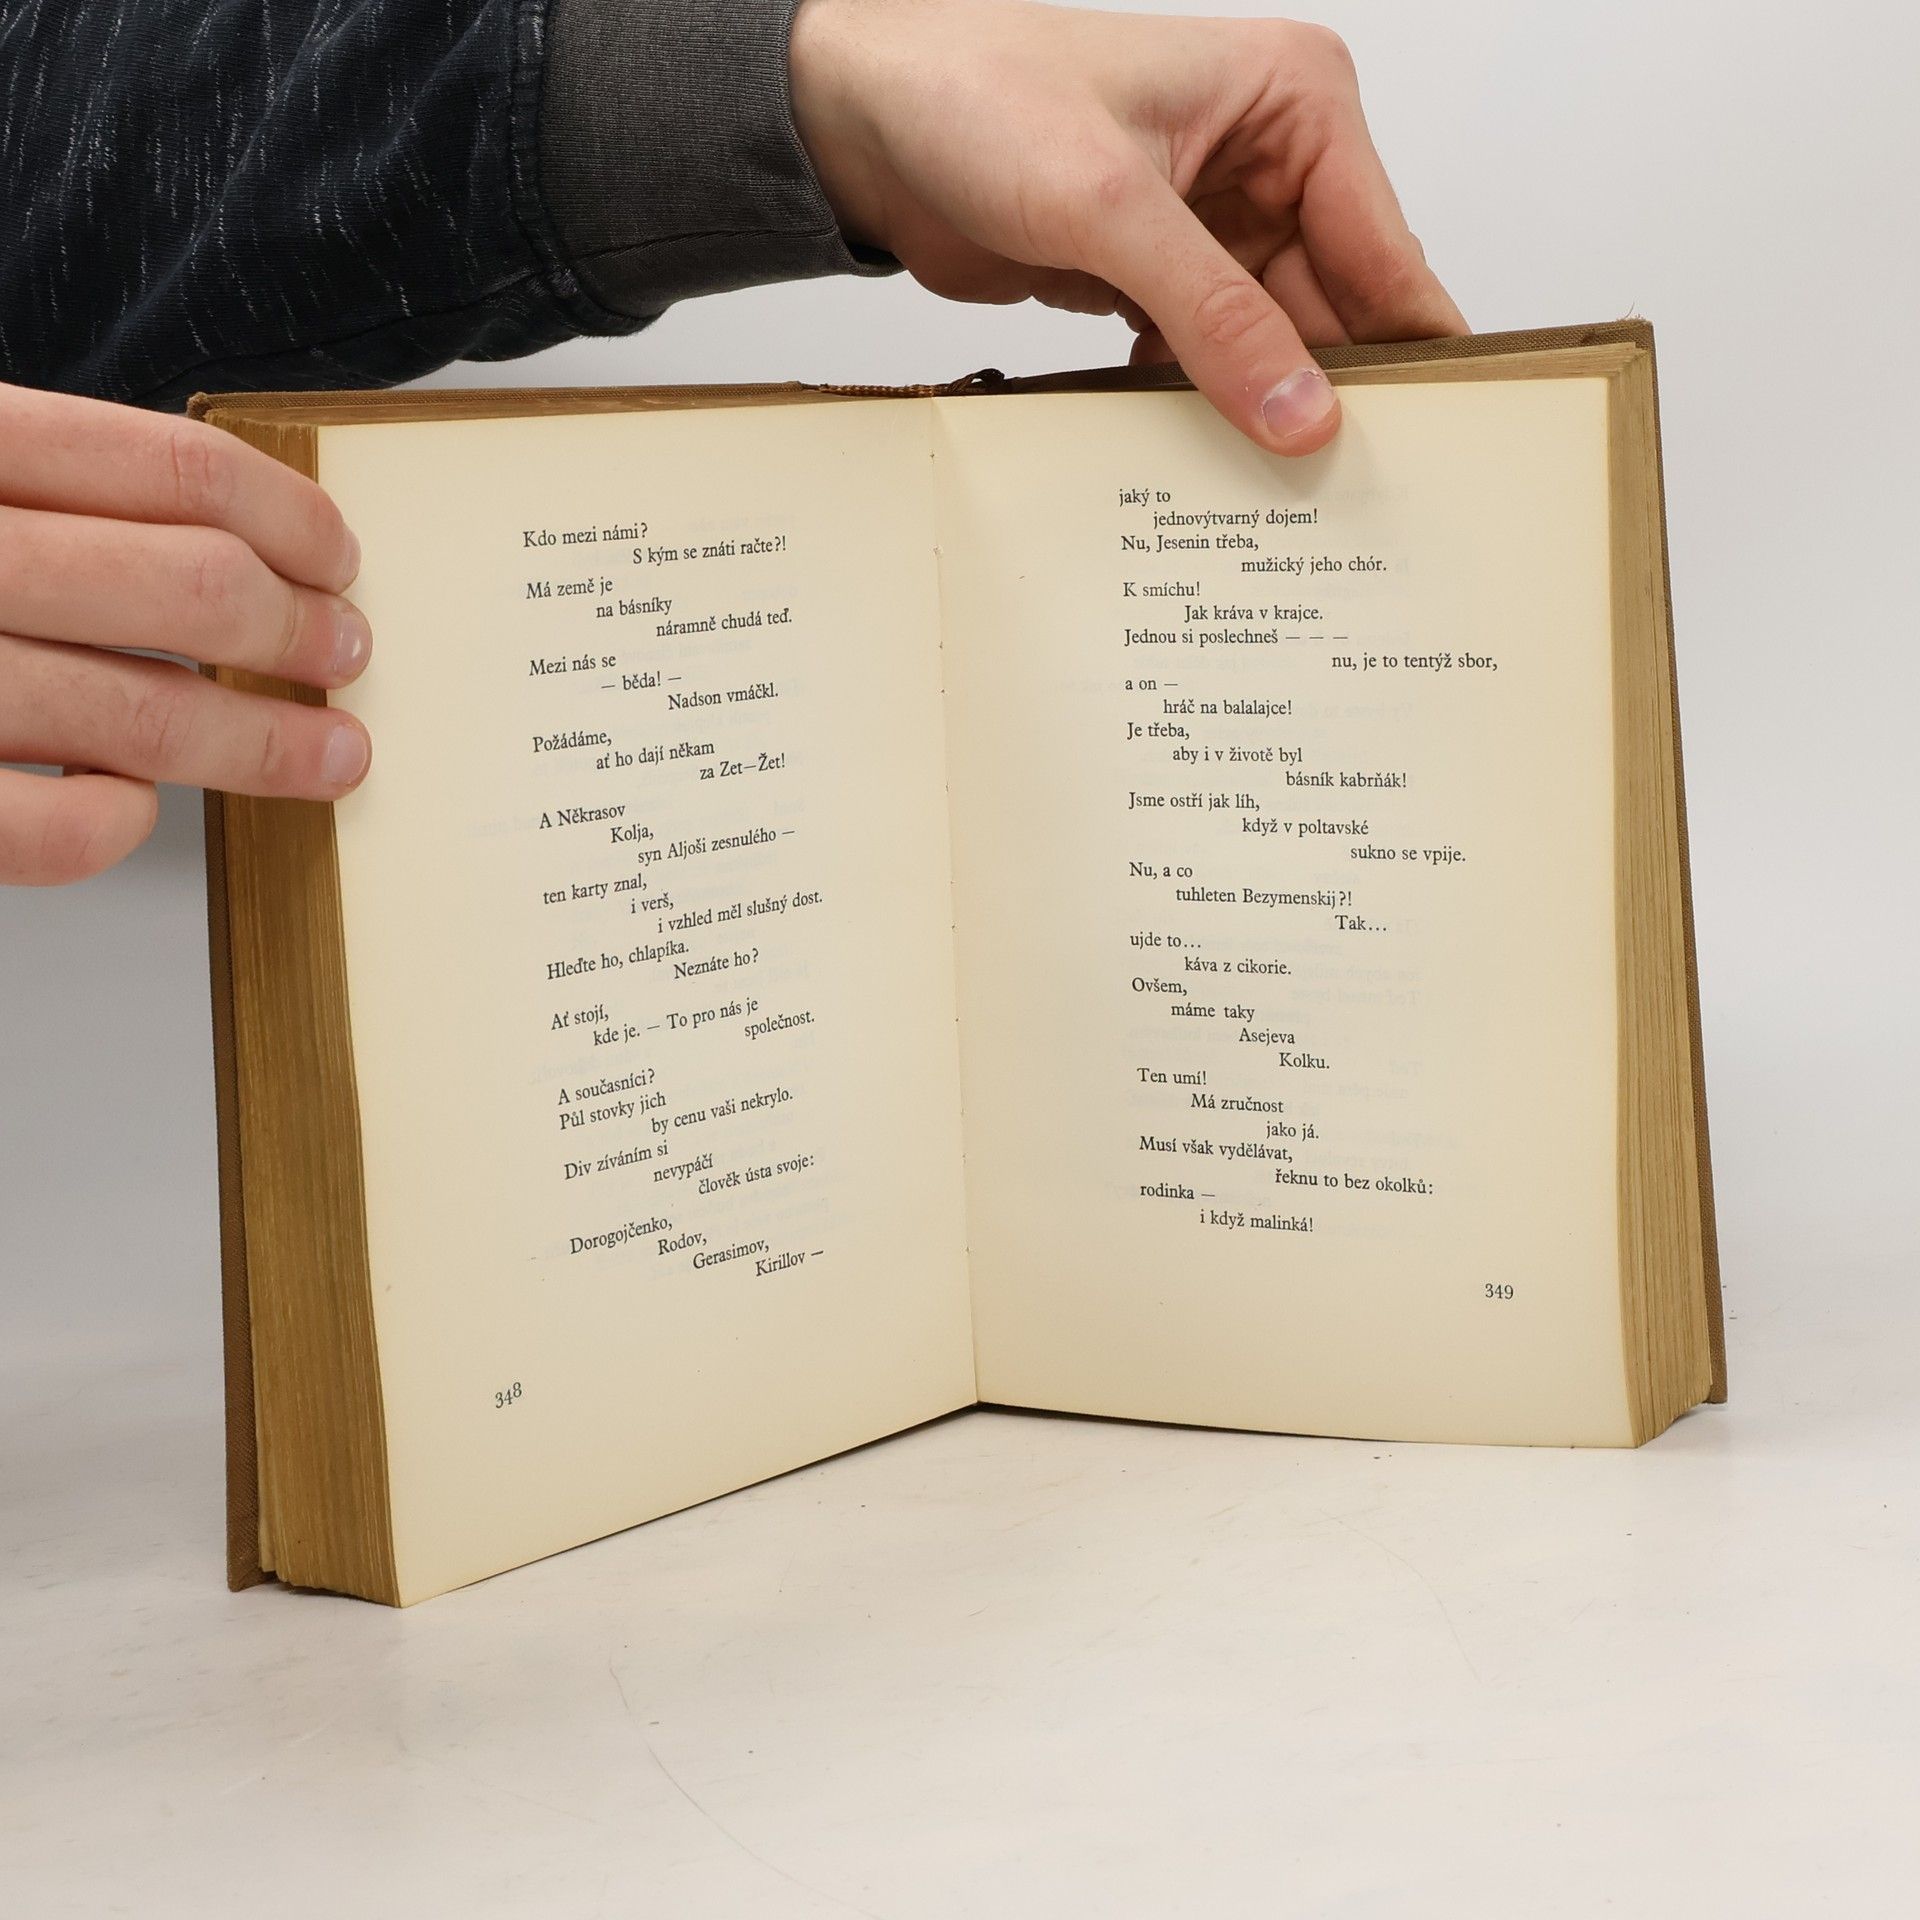 Kdo mezi námi?
S kým se znáti račte?!
Má země je
na básníky
náramně chudá teď.
Mezi nás se
— běda! —
Nadson vmáčkl.
Požádáme,
ať ho dají někam
za Zet—Žet!
A Někrasov
Kolja,
syn Aljoši zesnulého —
ten karty znal,
i verš,
i vzhled měl slušný dost.
Hleďte ho, chlapíka.
Neznáte ho?
Ať stojí,
kde je. — To pro nás je
společnost.
A současníci?
Půl stovky jich
by cenu vaši nekrylo.
Div zíváním si
nevypáčí
člověk ústa svoje:
Dorogojčenko,
Rodov,
Gerasimov,
Kirillov —
348
jaký to
jednovýtvarný dojem!
Nu, Jesenin třeba,
mužický jeho chór.
K smíchu!
Jak kráva v krajce.
Jednou si poslechneš — — —
nu, je to tentýž sbor,
a on —
hráč na balalajce!
Je třeba,
aby i v životě byl
básník kabrňák!
Jsme ostří jak líh,
když v poltavské
sukno se vpije.
Nu, a co
tuhleten Bezymenskij?!
Tak...
ujde to...
káva z cikorie.
Ovšem,
máme taky
Asejeva
Kolku.
Ten umí!
Má zručnost
jako já.
Musí však vydělávat,
řeknu to bez okolků:
rodinka —
i když malinká!
349